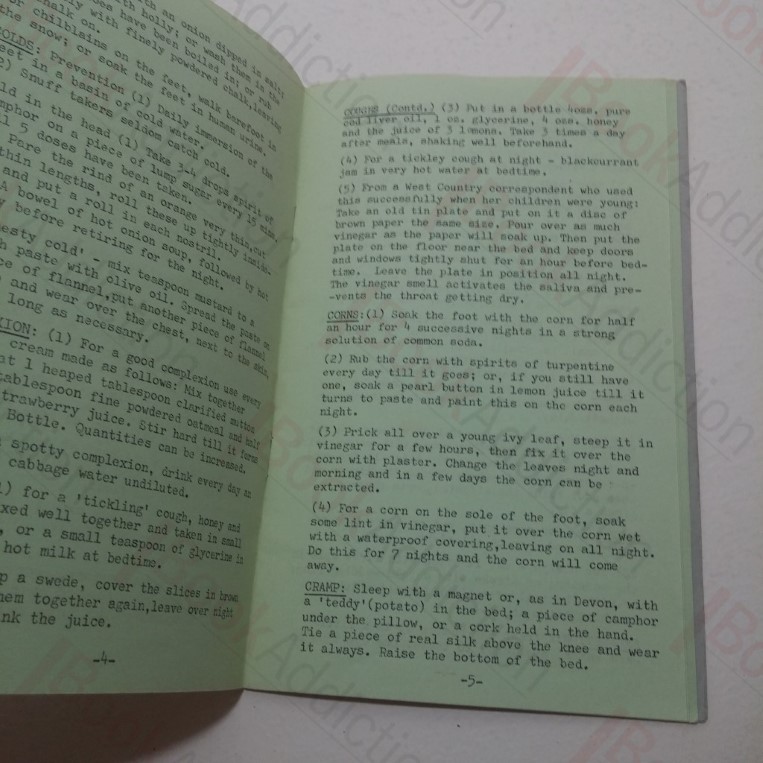 with an onion dipped in salt;
with holly; or wash them in the
have been boiled in; or rub
with finely powdered chalk, leaving
chalk on.
chilblains on the feet, walk barefoot in
the snow; or soak the feet in human urine.
COLDS: Prevention (1) Daily immersion of the
feet in a basin of cold water.
2) Snuff takers seldom catch cold.
in the head (1) Take 3-4 drops spirit of
camphor on a piece of lump sugar every 15 mins,
5 doses have been taken.
Pare the rind of an orange very thin, cut
thin lengths, roll these up tightly inside-
and put a roll in each nostril.
A bowel of hot onion soup, followed by hot
before retiring for the night.
cold' - mix teaspoon mustard to a
paste with olive oil. Spread the paste on
of flannel,put another piece of flannel
and wear over the chest, next to the skin,
long as necessary.
(1) For a good complexion use every
cream made as follows: Mix together
1 heaped tablespoon clarified mutton
tablespoon fine powdered oatmeal and half
strawberry juice. Stir hard till it forms
Bottle. Quantities can be increased.
spotty complexion, drink every day an
cabbage water undiluted.
for a 'tickling' cough, honey and
mixed well together and taken in small
or a small teaspoon of glycerine in
hot milk at bedtime.
a swede, cover the slices in brown
them together again,leave over night
the juice.
-4-
COUGHS (Contd.) (3) Put in a bottle 4ozs. pure
cod liver oil, 1 oz. glycerine, 4 ozs. honey
and the juice of 3 lemons. Take 3 times a day
after meals, shaking well beforehand.
(4) For a tickley cough at night - blackcurrant
jam in very hot water at bedtime.
(5) From a West Country correspondent who used
this successfully when her children were young:
Take an old tin plate and put on it a disc of
brown paper the same size. Pour over as much
vinegar as the paper will soak up. Then put the
plate on the floor near the bed and keep doors
and windows tightly shut for an hour before bed-
time. Leave the plate in position all night.
The vinegar smell activates the saliva and pre-
-vents the throat getting dry.
CORNS:(1) Soak the foot with the corn for half
an hour for 4 successive nights in a strong
solution of common soda.
(2) Rub the corn with spirits of turpentine
every day till it goes; or, if you still have
one, soak a pearl button in lemon juice till it
turns to paste and paint this on the corn each
night.
(3) Prick all over a young ivy leaf, steep it in
vinegar for a few hours, then fix it over the
corn with plaster. Change the leaves night and
morning and in a few days the corn can be
extracted.
(4) For a corn on the sole of the foot, soak
some lint in vinegar, put it over the corn wet
with a waterproof covering,leaving on all night.
Do this for 7 nights and the corn will come
away.
CRAMP: Sleep with a magnet or, as in Devon, with
a 'teddy'(potato) in the bed; a piece of camphor
under the pillow, or a cork held in the hand.
Tie a piece of real silk above the knee and wear
it always. Raise the bottom of the bed.
-5-
BookAddiction